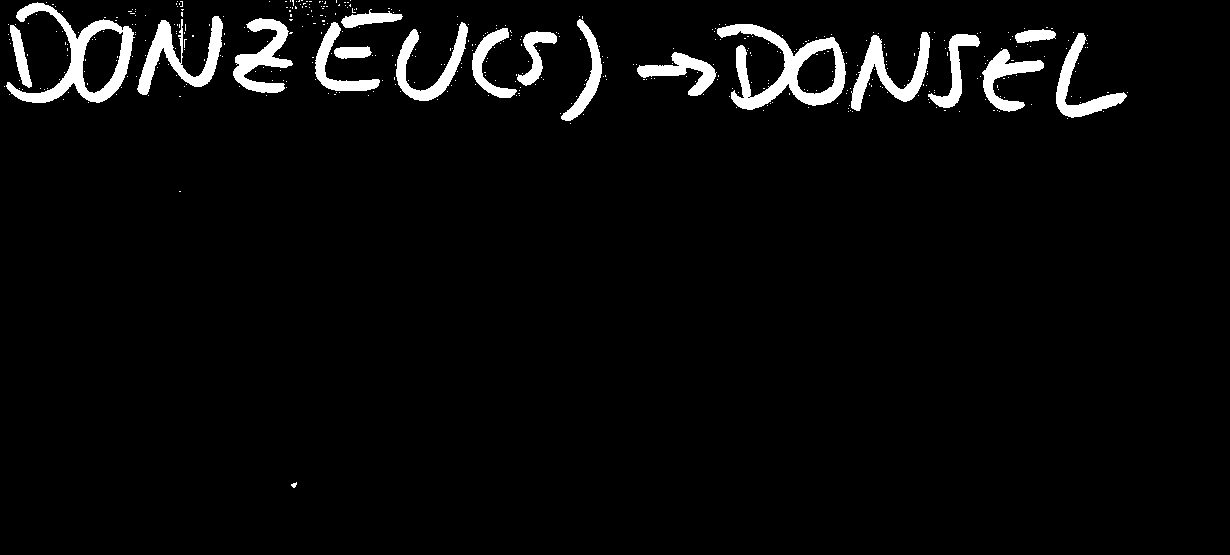 DONZEU(S) → DONSEL